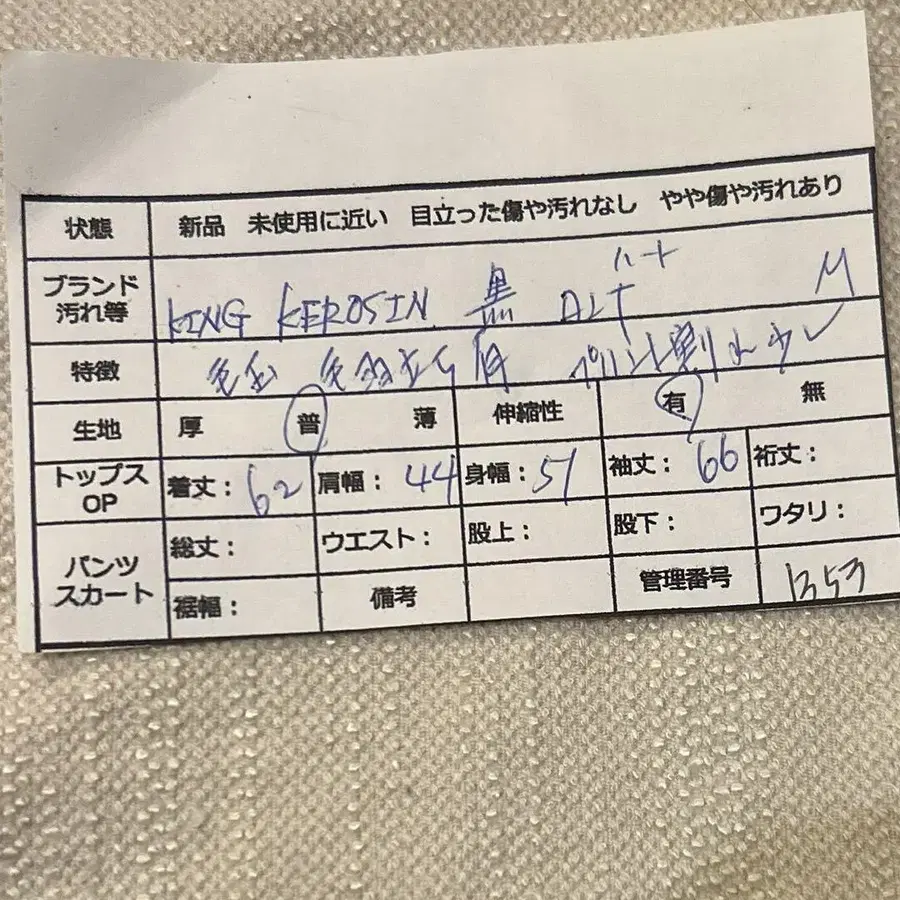 状態 新品 未使用に近い 目立った傷や汚れなし やや傷や汚れあり
ブランド 汚れ等 KING KEROSIN 黒 M
特徴 プリント割れ
生地 厚 普 薄 伸縮性 有 無
トップス OP 着丈: 62 肩幅: 44 身幅: 51 袖丈: 66 裄丈:
パンツ スカート 総丈: ウエスト: 股上: 股下: ワタリ:
裾幅: 備考 管理番号 1353